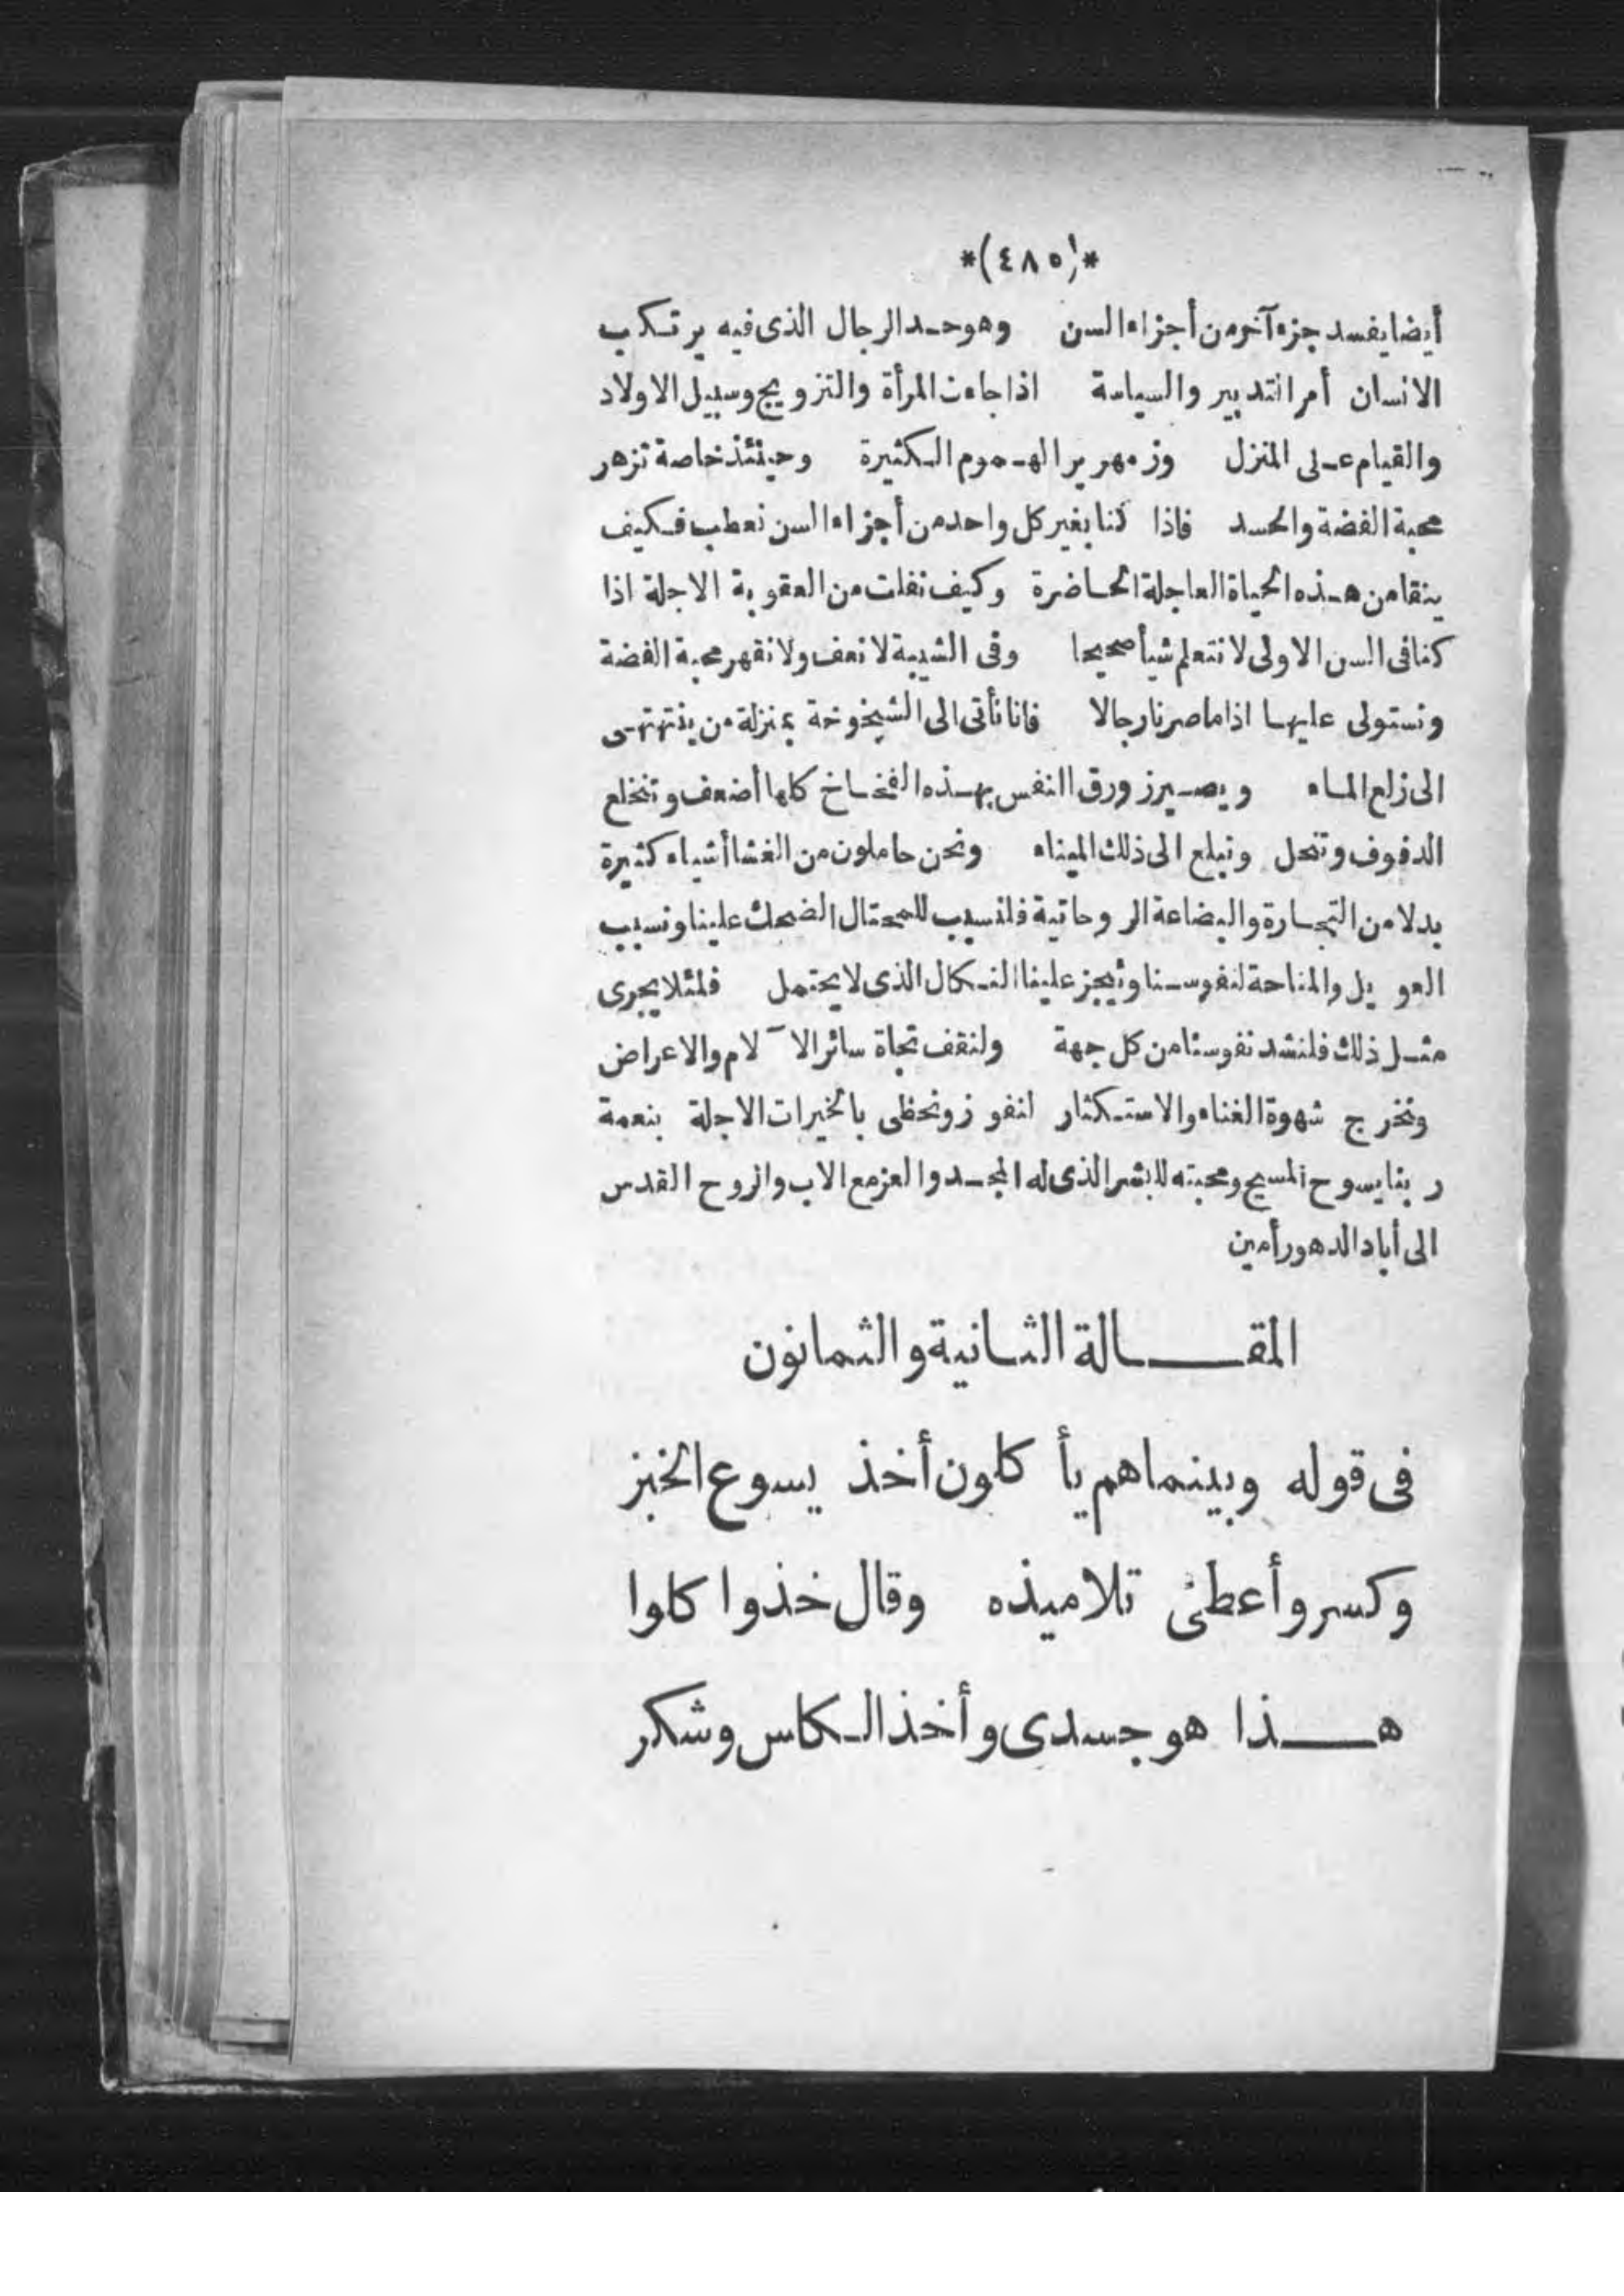 *(٤٨٥)*
أيضا يفسد جزء آخر من أجزاء السن وهو حد الرجال الذى فيه يرتكب
الانسان أمر التدبير والسياسة اذا جاءت المرأة والتزويج وسبيل الاولاد
والقيام على المنزل وزمهرير الهموم الكثيرة وحينئذ خاصة تزهر
محبة الفضة والحسد فاذا كنا بغير كل واحد من أجزاء السن نعطب فكيف
ينقا من هذه الحياة العاجلة الحاضرة وكيف نفلت من العقوبة الاجلة اذا
كنا فى السن الاولى لا نتعلم شيأ صحيحا وفى الشيبة لا نعف ولا نقهر محبة الفضة
ونستولى عليها اذا ما صرنا رجالا فانا نأتى الى الشيخوخة بمنزلة من ينتهى
الى زلع الماء ويصير زورق النفس بهذه الفخاخ كلها أضعف وتنخلع
الدفوف وتنحل ونبلع الى ذلك الميناء ونحن حاملون من الغشا أشياء كثيرة
بدلا من التجارة والبضاعة الروحانية فلنسبب للمحتال الضحك علينا ونسبب
العويل والمناحة لنفوسنا ونجز علينا النكال الذى لا يحتمل فلئلا يجرى
مثل ذلك فلنشد نفوسنا من كل جهة ولنقف تجاة سائر الآلام والاعراض
ونخرج شهوة الغناء والاستكثار لنفوز ونحظى بالخيرات الاجلة بنعمة
ربنا يسوح المسيح ومحبته للبشر الذى له المجد والعز مع الاب والروح القدس
الى أباد الدهور أمين
المقالة الثانية والثمانون
فى قوله وبينما هم يأكلون أخذ يسوع الخبز
وكسر وأعطى تلاميذه وقال خذوا كلوا
هذا هو جسدى وأخذ الكاس وشكر